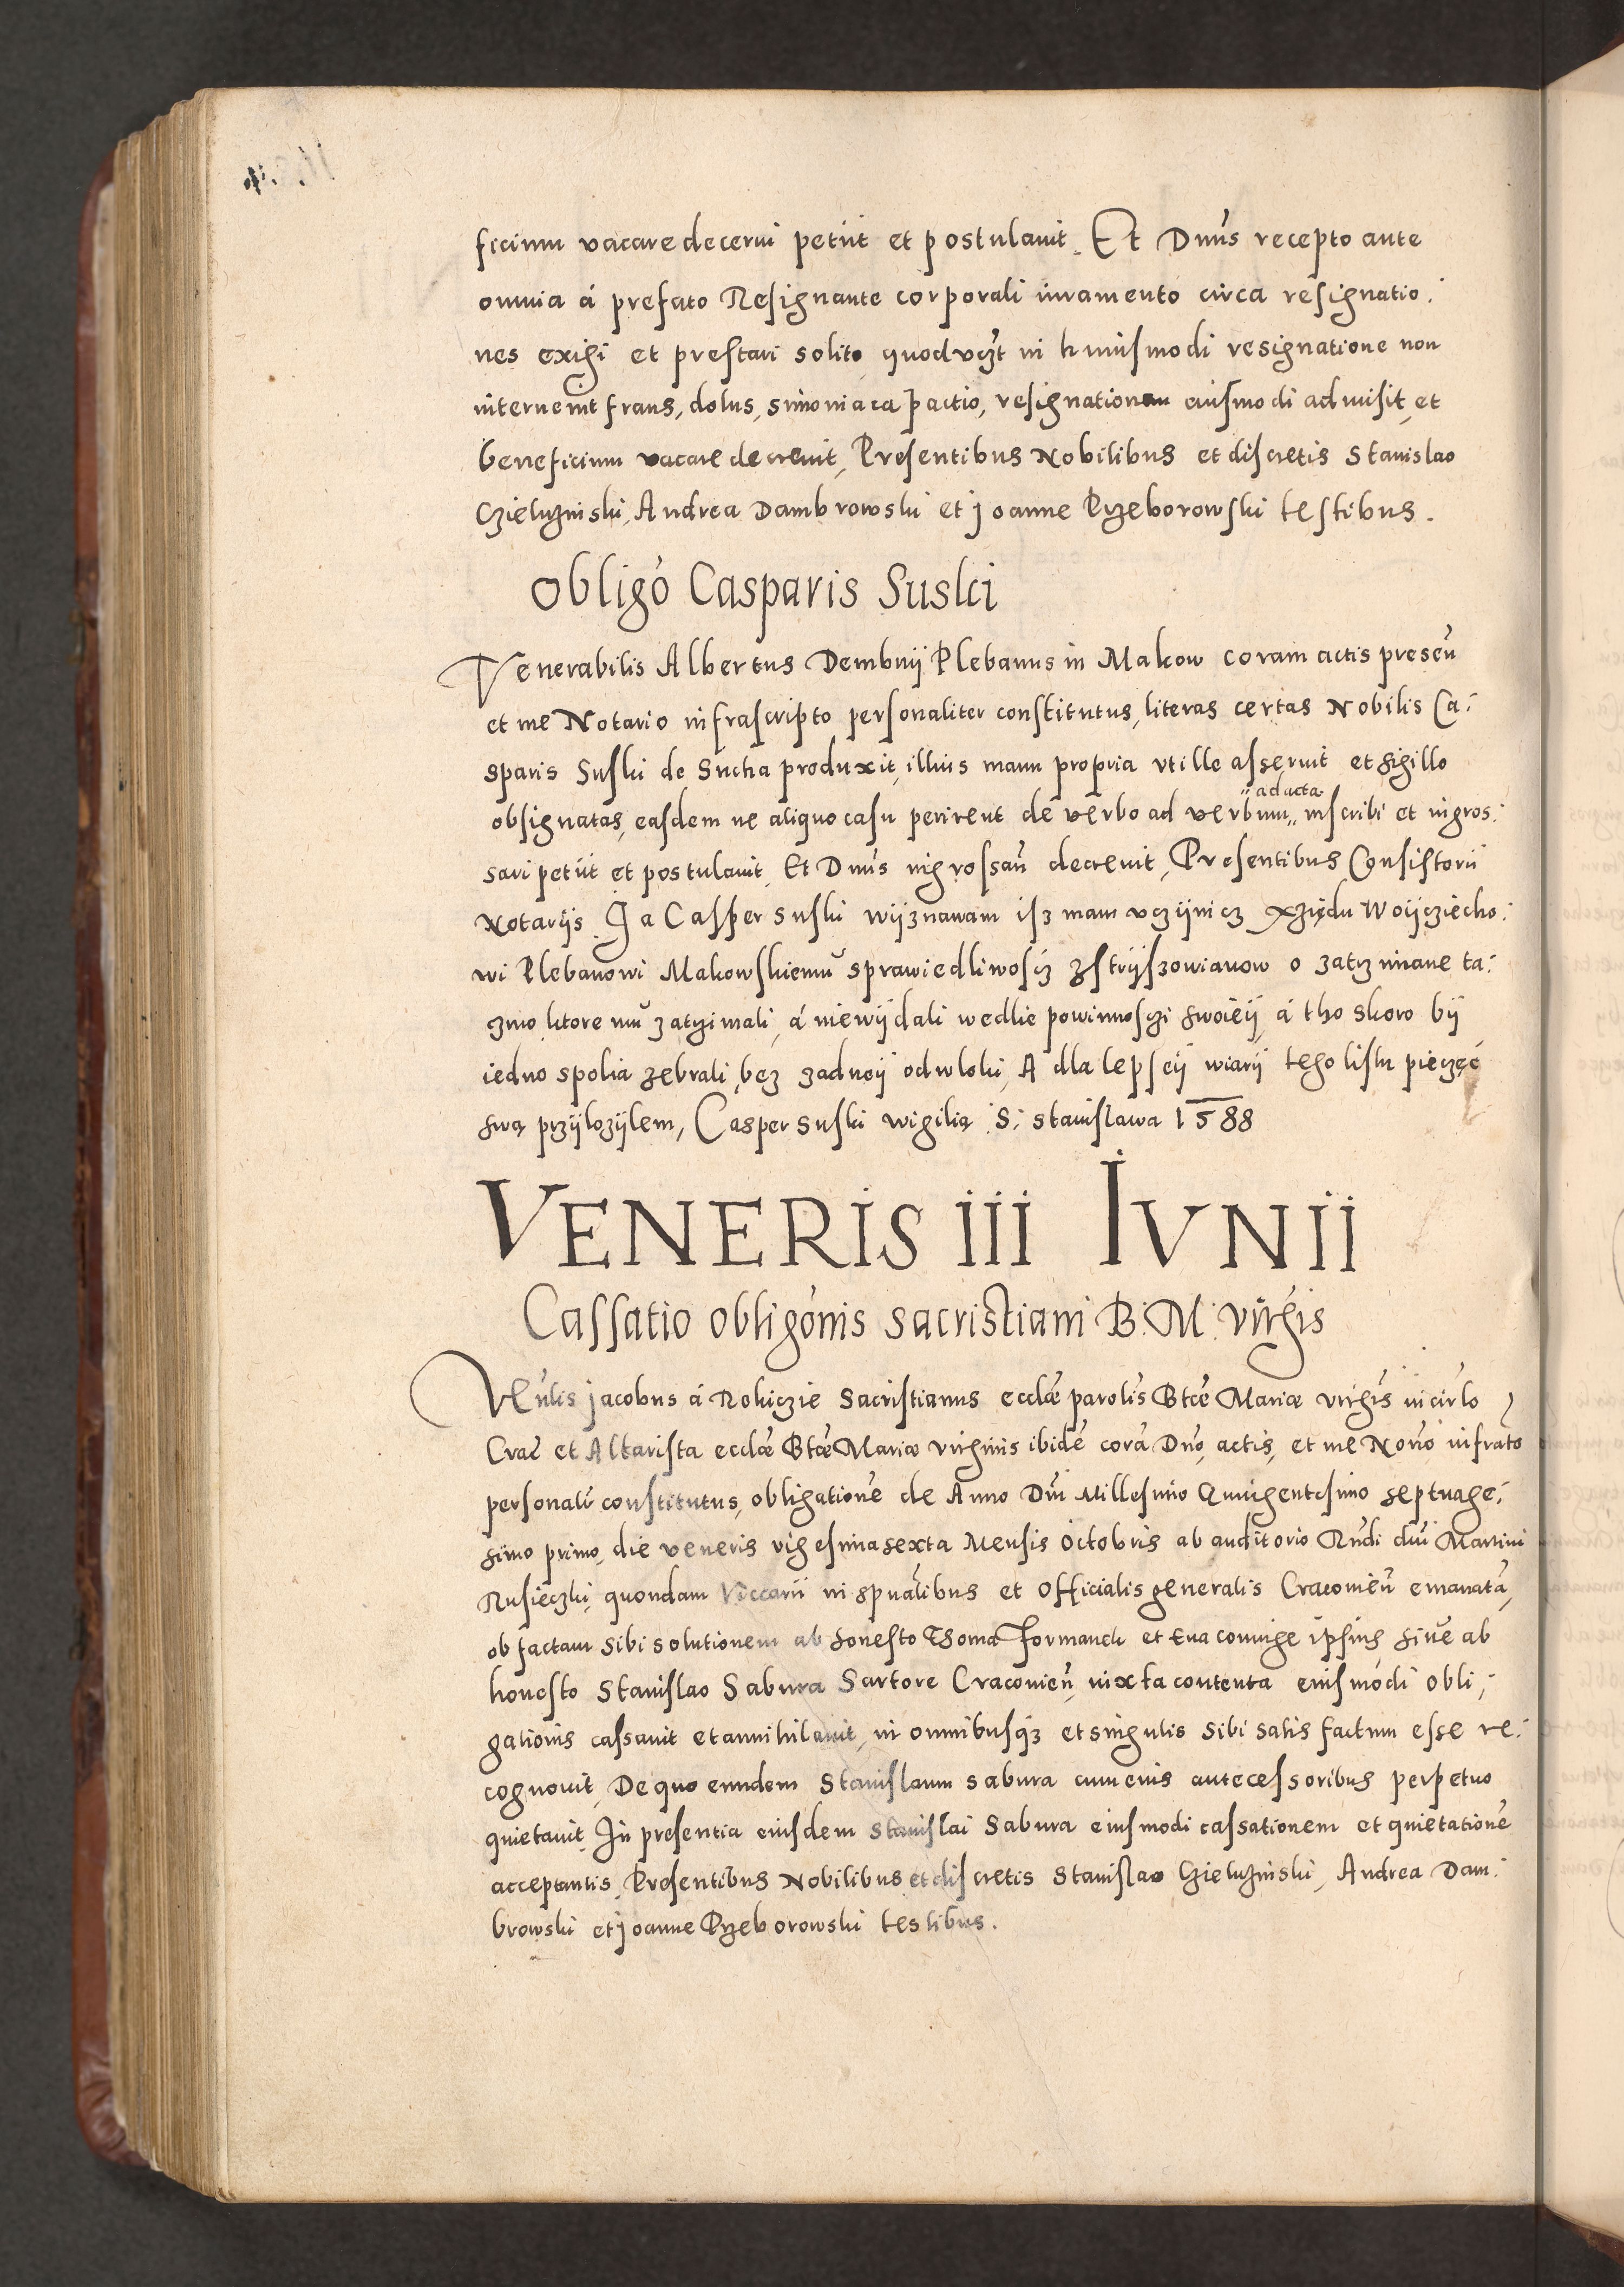 ficium vacare decerni petiit et postulauit. Et Dnūs recepto ante
omnia á prefato Resignante corporali iuramento circa resignatio:
nes exigi et prestari solito quod vczt in huiusmodi resignatione non
interuenit fraus, dolus, simoniaca pactio, resignationem eiusmodi admisit, et
beneficium vacare decreuit, Presentibus Nobilibus et discretis Stanislao
Czieluzinski, Andrea Dambrowski et Joanne Przeborowski testibus.
Obligó Casparis Suski
Venerabilis Albertus Dembnij Plebanus in Makow coram actis preseñ
et me Notario infrascripto personaliter constitutus, literas certas Nobilis Ca:
sparis Suski de Sucha produxit, illius manu propria vt ille asseruit et sigillo
obsignatas, easdem ne aliquo casu perirent de verbo ad verbum ad acta inscribi et ingros:
sari petiit et postulauit. Et Dnūs ingrossañ decreuit, Presentibus Consistorii
Notarijs. Ja Casper Suski wijznawam isz mam vczijnicz xziędu Woijcziecho:
wi Plebanowi Makowskiemu sprawiedliwoscz zstrijszowianow o zatrzimane ta:
czmo ktore mu zatrzimali, á niewijdali wedlie powinnosczi swoieij, á tho skoro bij
iedno spolia zebrali, bez zadneij odwloki, A dla lepseij wiarij tego listu pieczęć
swą przijlozijlem, Casper Suski wigilią S: Stanislawa 1588
VENERIS III IVNII
Cassatio obligónis sacristiani B: M: Virgis
Venlis Jacobus á Rokiczie Sacristianus ecclæ parolis Btæ Mariæ virgis in cirlo
Crac̄ et Altarista ecclæ Btæ Mariæ virginis ibidē corā Dno, actis, et me Norio infrato
personalr constitutus, obligationē de Anno Dni Millesimo Quingentesimo septuage:
simo primo, die veneris vigesima sexta Mensis Octobris ab auditorio Rndi dni Martini
Rusieczki, quondam Viccarii in spualibus et Officialis generalis Cracovieñ emanatā,
ob factam sibi solutionem ab honesto Thoma Formanek et Eua coniuge ipsius siue ab
honesto Stanislao Sabura Sartore Cracouieñ, iuxta contenta eiusmodi obli:
gationis cassauit et annihilauit, in omnibusqz et singulis sibi satis factum esse re:
cognouit, De quo eundem Stanislaum Sabura cum eius antecessoribus perpetuo
quietauit. In presentia eiusdem Stanislai Sabura eiusmodi cassationem et quietationē
acceptantis, Presentibus Nobilibus et discretis Stanislao Czieluzinski, Andrea Dam:
browski et Joanne Przeborowski testibus.